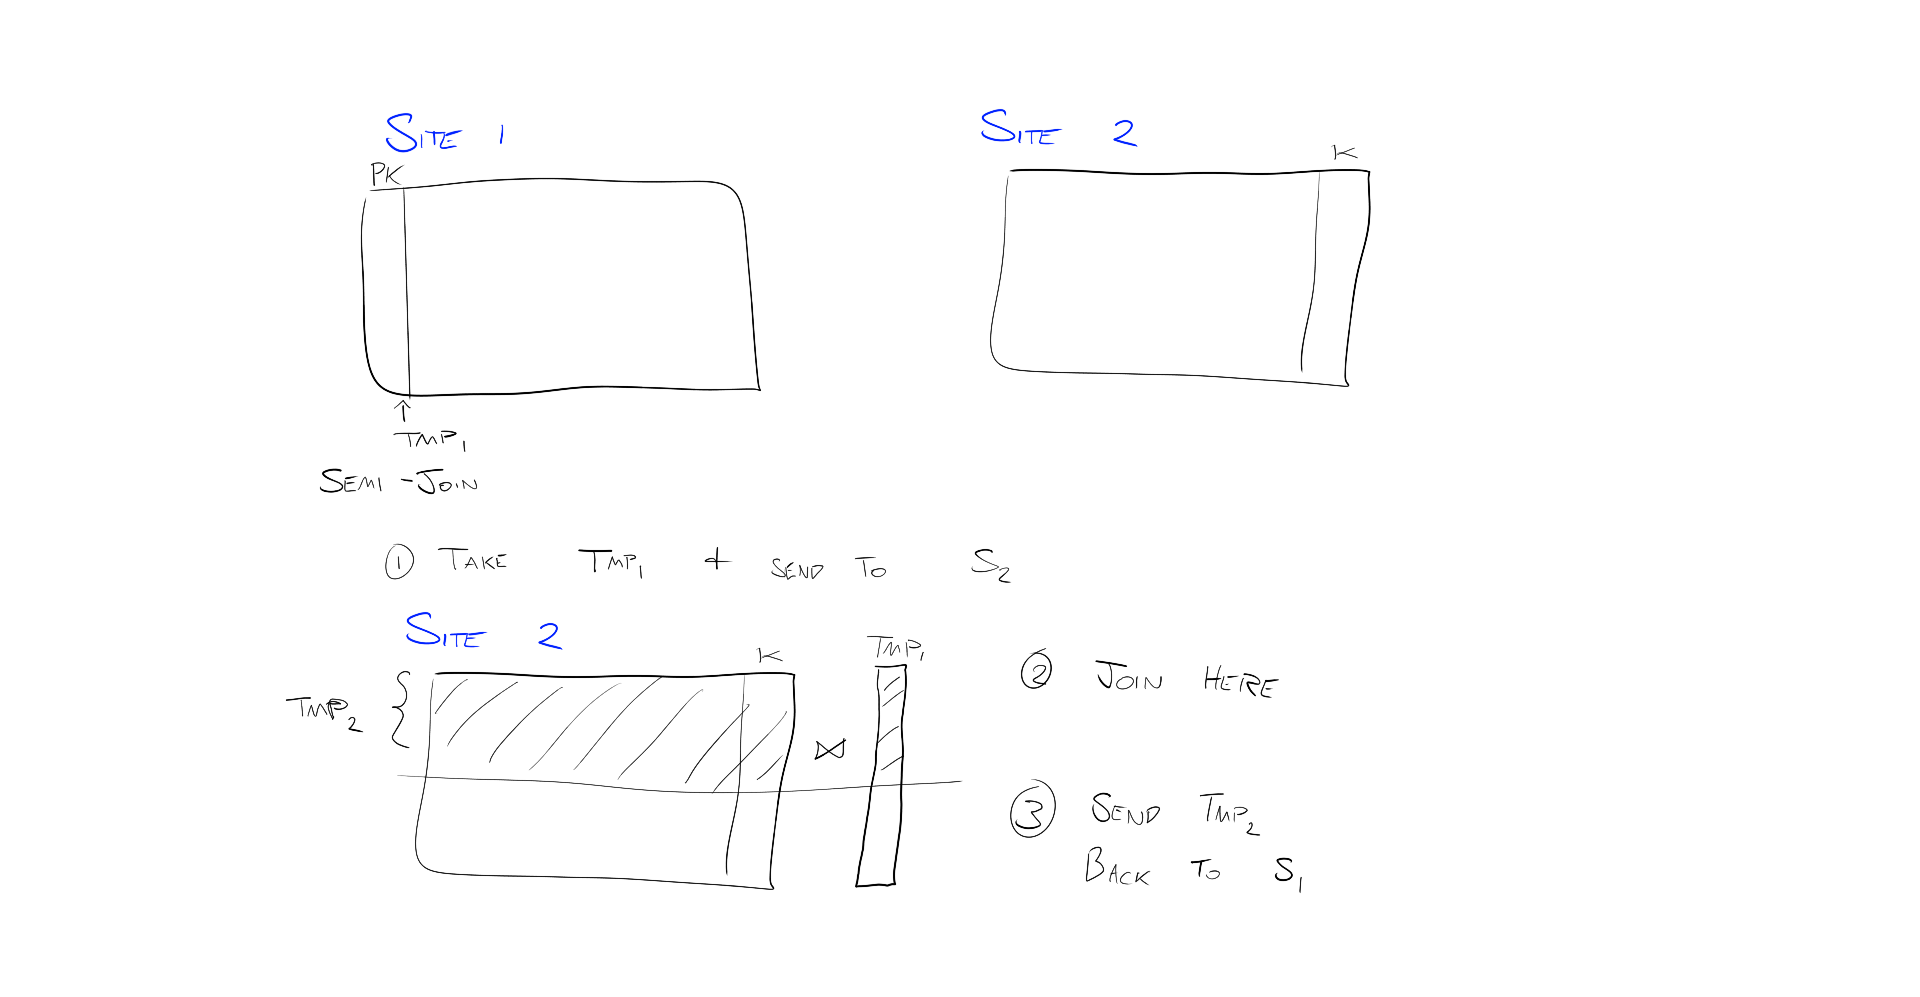 SITE 1
SITE 2
PK
K
TMP1
SEMI-JOIN
① TAKE TMP1 + SEND TO S2
SITE 2
K
TMP1
TMP2
⋈
② JOIN HERE
③ SEND TMP2
BACK TO S1